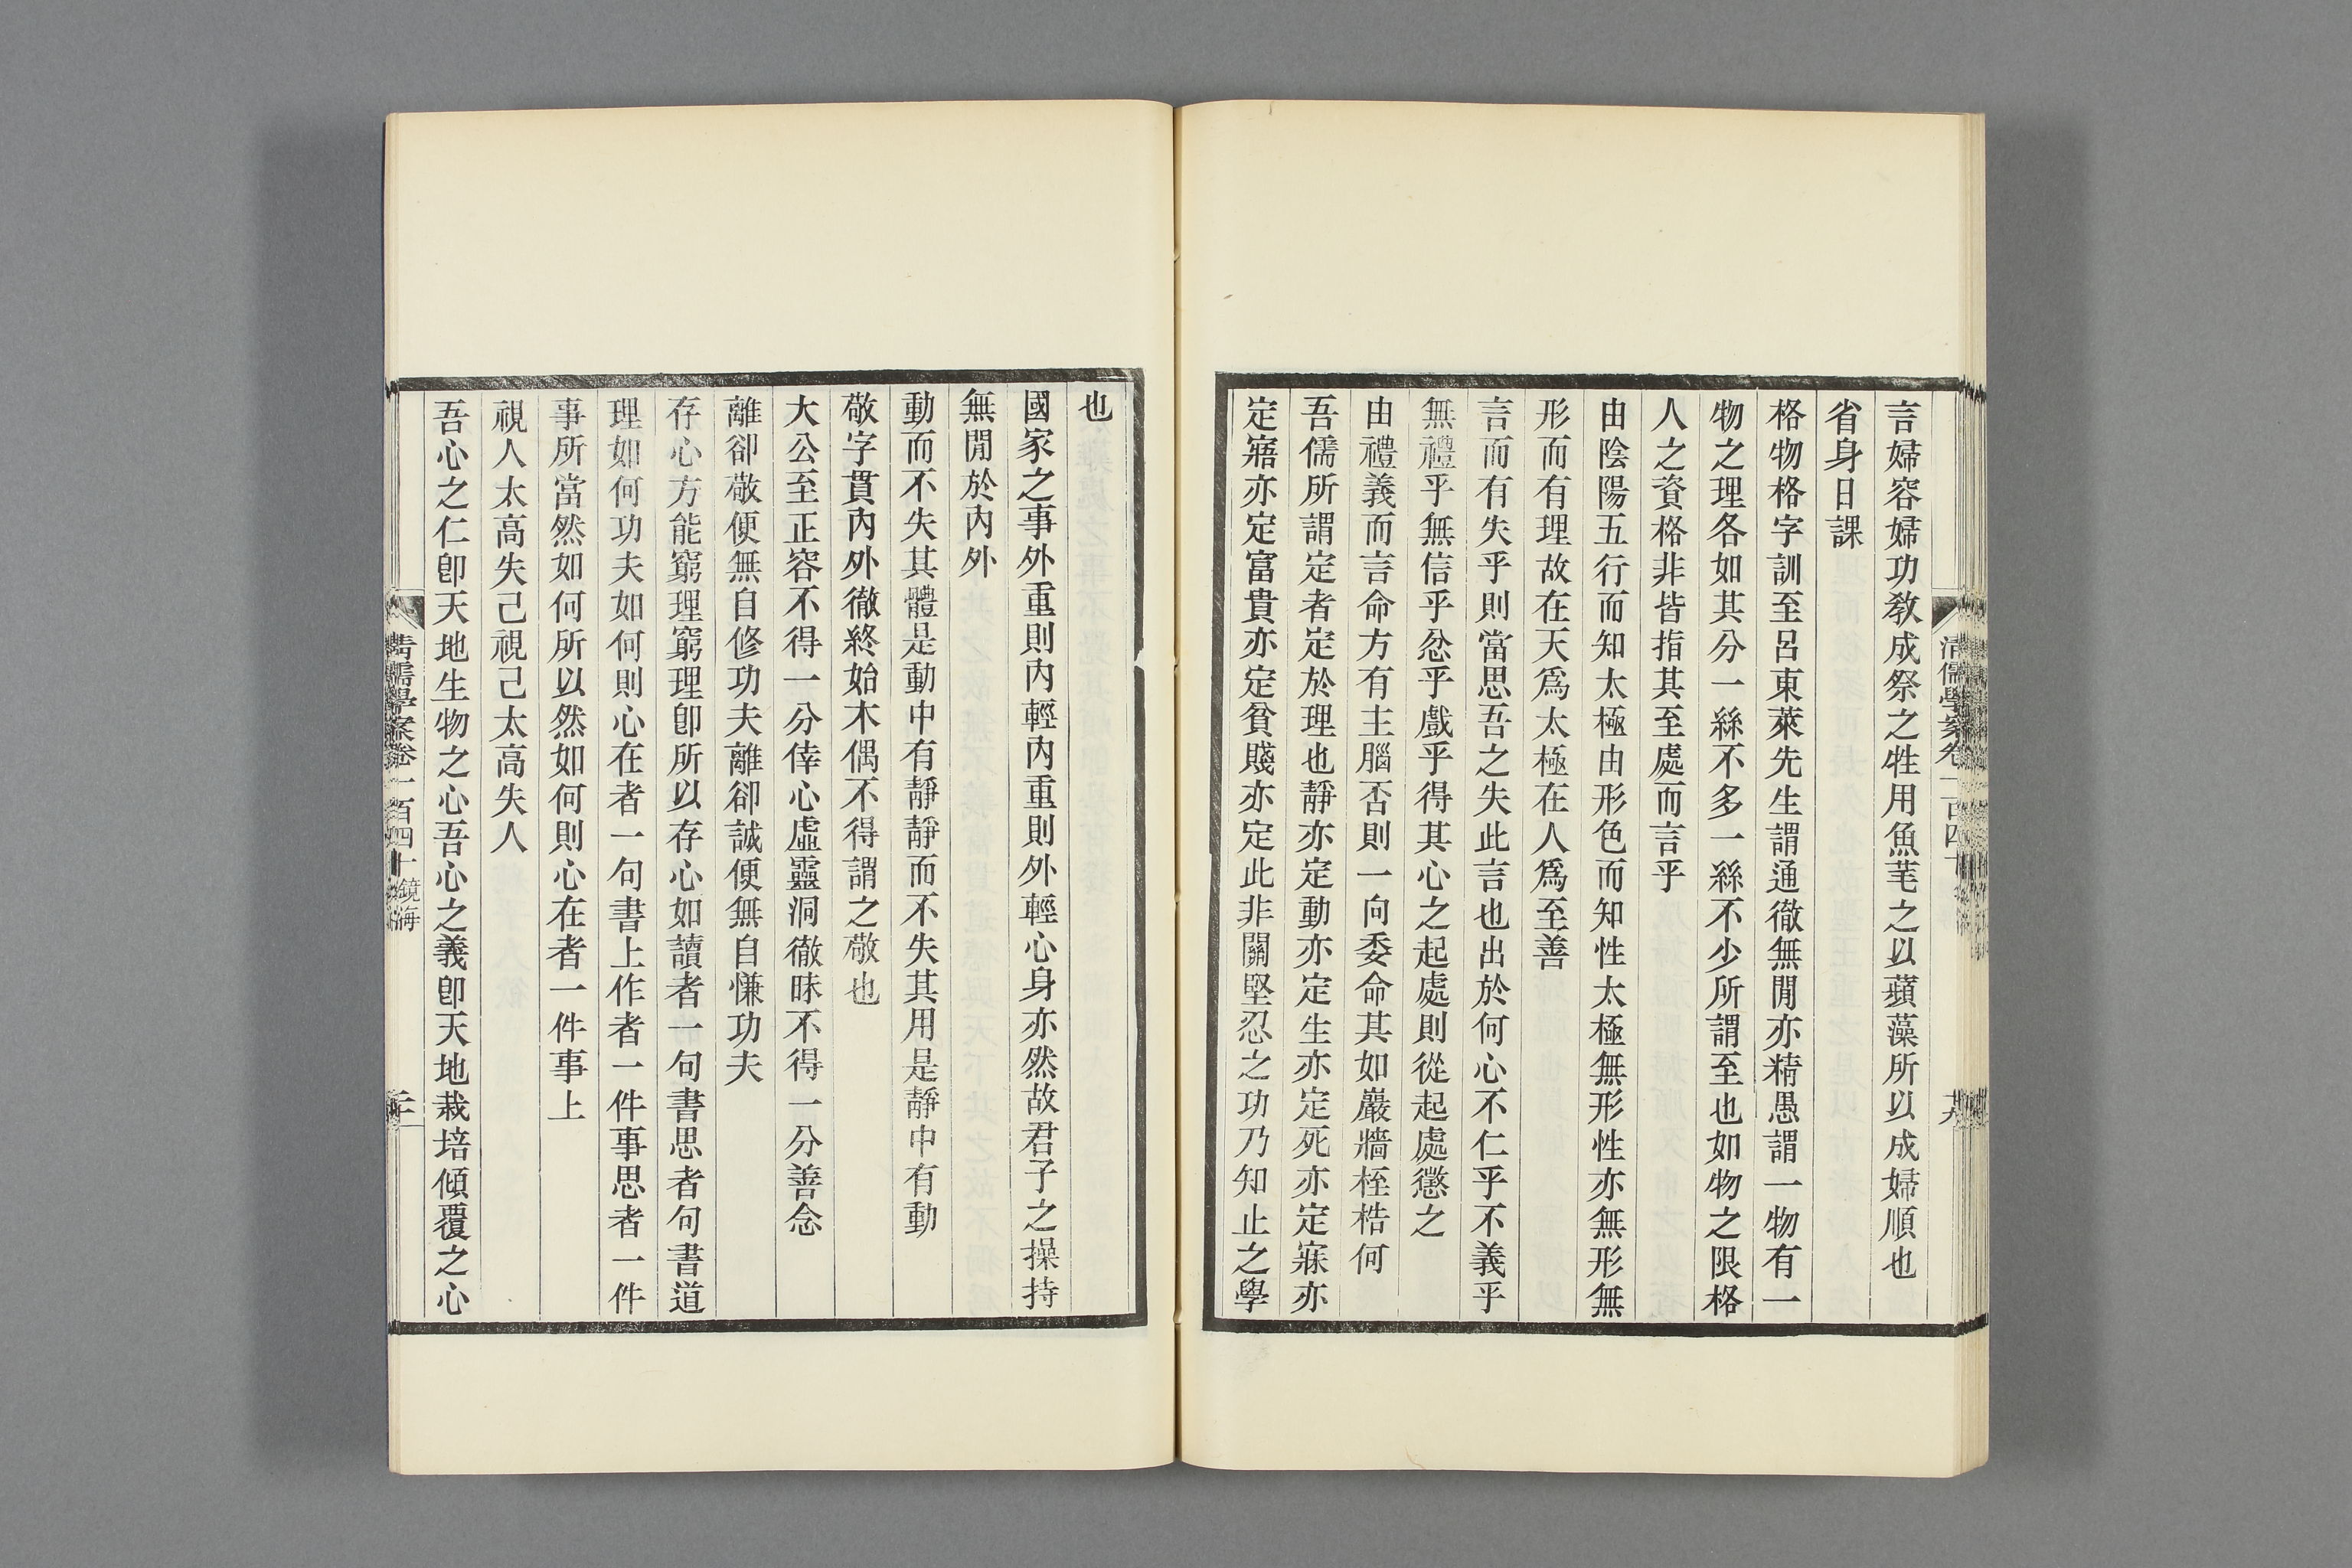 言婦容婦功敎成祭之牲用魚芼之以蘋藻所以成婦順也
省身日課
格物格字訓至呂東萊先生謂通徹無閒亦精愚謂一物有一
物之理各如其分一絲不多一絲不少所謂至也如物之限格
人之資格非皆指其至處而言乎
由陰陽五行而知太極由形色而知性太極無形性亦無形無
形而有理故在天爲太極在人爲至善
言而有失乎則當思吾之失此言也出於何心不仁乎不義乎
無禮乎無信乎忿乎戲乎得其心之起處則從起處懲之
由禮義而言命方有主腦否則一向委命其如巖牆桎梏何
吾儒所謂定者定於理也靜亦定動亦定生亦定死亦定寐亦
定寤亦定富貴亦定貧賤亦定此非關堅忍之功乃知止之學
清儒學案卷一百四十
九
也
國家之事外重則內輕內重則外輕心身亦然故君子之操持
無閒於內外
動而不失其體是動中有靜靜而不失其用是靜中有動
敬字貫內外徹終始木偶不得謂之敬也
大公至正容不得一分倖心虛靈洞徹昧不得一分善念
離卻敬便無自修功夫離卻誠便無自慊功夫
存心方能窮理窮理卽所以存心如讀者一句書思者句書道
理如何功夫如何則心在者一句書上作者一件事思者一件
事所當然如何所以然如何則心在者一件事上
視人太高失己視己太高失人
吾心之仁卽天地生物之心吾心之義卽天地栽培傾覆之心
清儒學案卷一百四十 鏡海